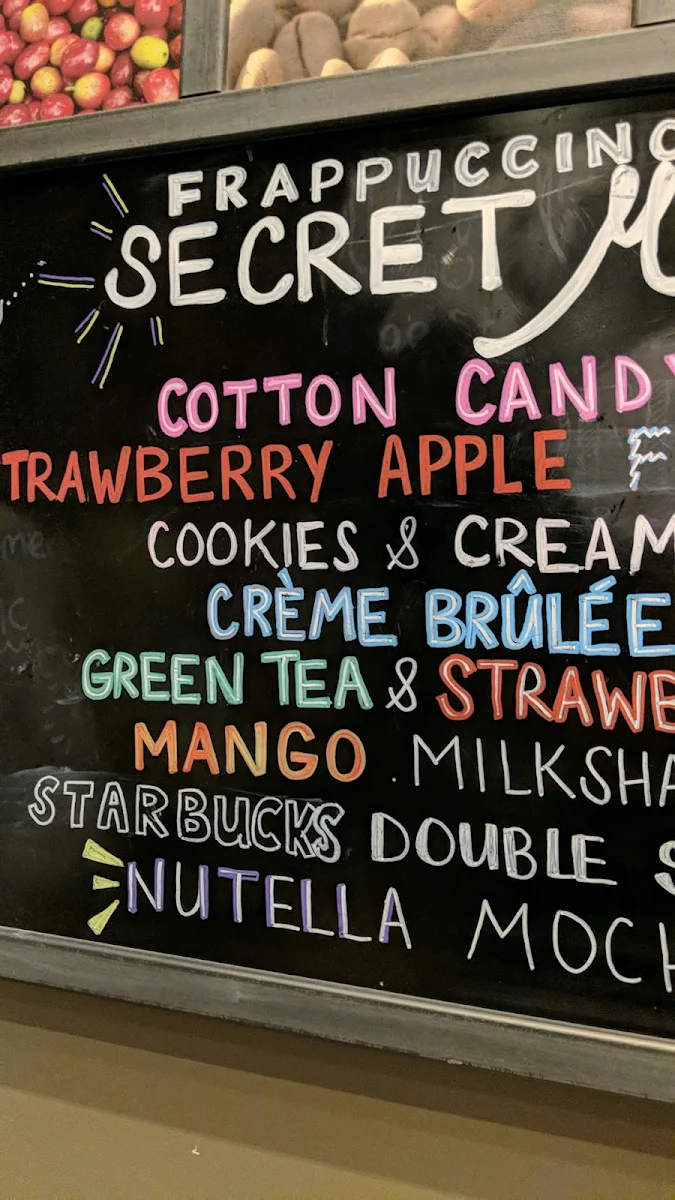 FRAPPUCCINO
SECRET M
COTTON CANDY
TRAWBERRY APPLE F
COOKIES & CREAM
CRÈME BRÛLÉE
GREEN TEA & STRAWB
MANGO MILKSHA
STARBUCKS DOUBLE S
NUTELLA MOCH